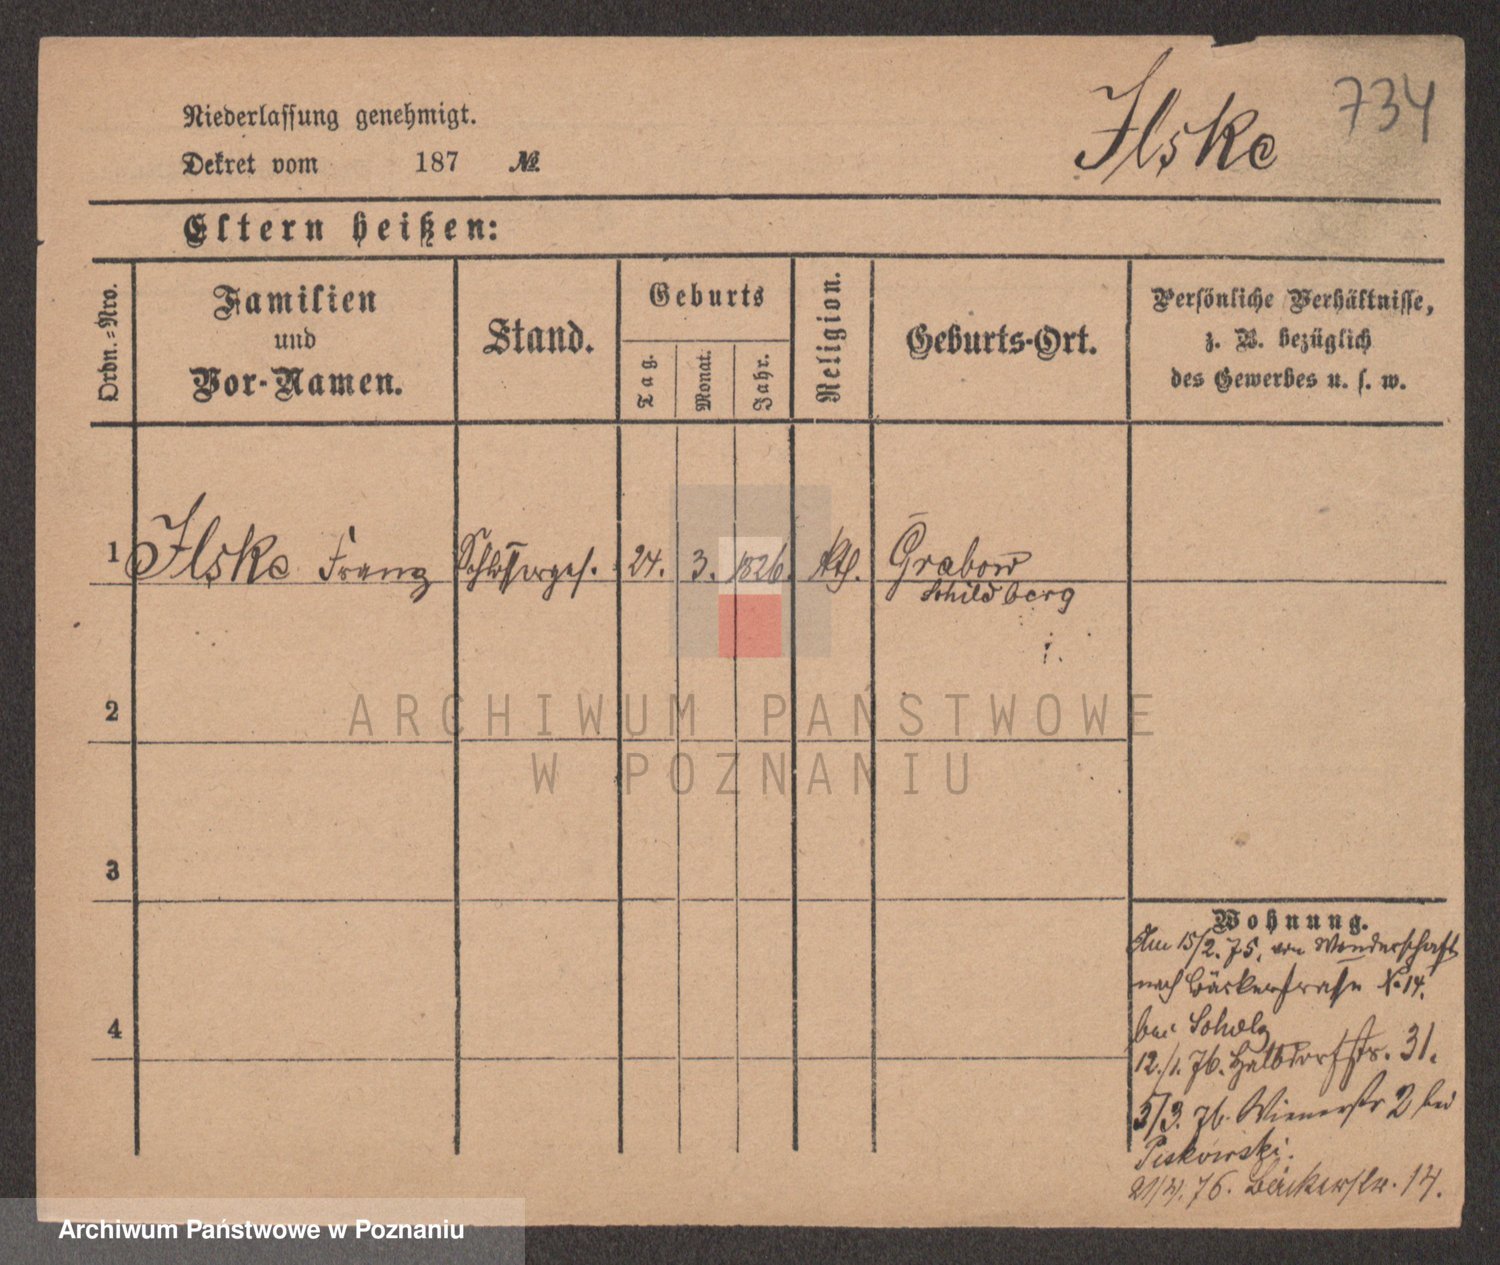 Ilske
734
Niederlassung genehmigt.
Dekret vom 187 №
Eltern heißen:
Ordn.=Nro.
Familien
und
Vor-Namen.
Stand.
Geburts
Tag.
Monat.
Jahr.
Religion.
Geburts-Ort.
Persönliche Verhältnisse,
z. B. bezüglich
des Gewerbes u. s. w.
1 Ilske Franz Schlosserges. 24. 3. 1826. kth. Grabow
Schildberg
2
3
4
Wohnung.
Am 15/2. 75. von Wanderschaft
nach Bäckerstraße No 14.
bei Scholz
12./1. 76. Halbdorfstr. 31.
5/3. 76. Wienerstr 2 bei
Piskowski.
21/4. 76. Bäckerstr. 14.
ARCHIWUM PAŃSTWOWE
W POZNANIU
Archiwum Państwowe w Poznaniu